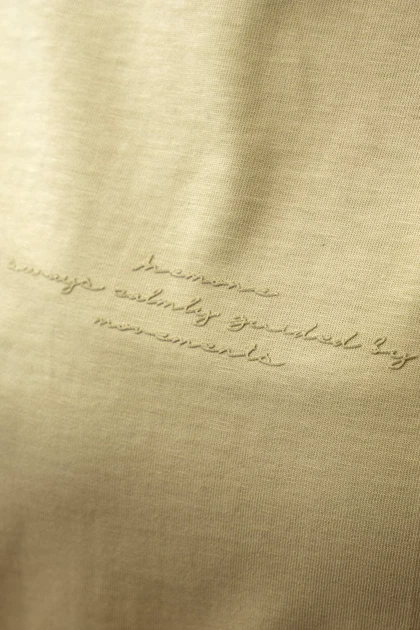 always calmly guided by
movements